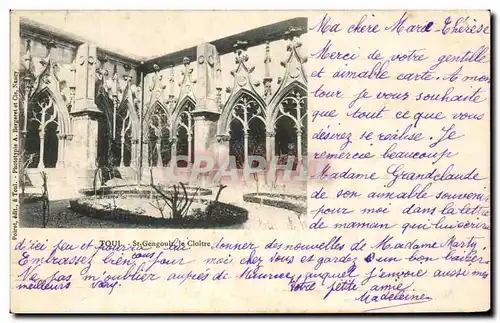 Ma chère Marie-Thérèse
Merci de votre gentille
et aimable carte. A mon
tour je vous souhaite
que tout ce que vous
désirez se réalise. Je
remercie beaucoup
Madame Grandclaude
de son aimable souvenir
pour moi dans la lettre
de maman qui lui écrira
d'ici peu et pourra lui donner des nouvelles de Madame Marty.
Embrassez bien tous pour moi chez vous et gardez un bon baiser.
Ne pas m'oublier auprès de Maurice, auquel j'envoie aussi mes
meilleurs
Votre petite amie
Madeleine
TOUL. - St-Gengoult, le Cloître
Poirot, édit., à Toul. - Phototypie A. Bergeret et Cie, Nancy
CPARAMA